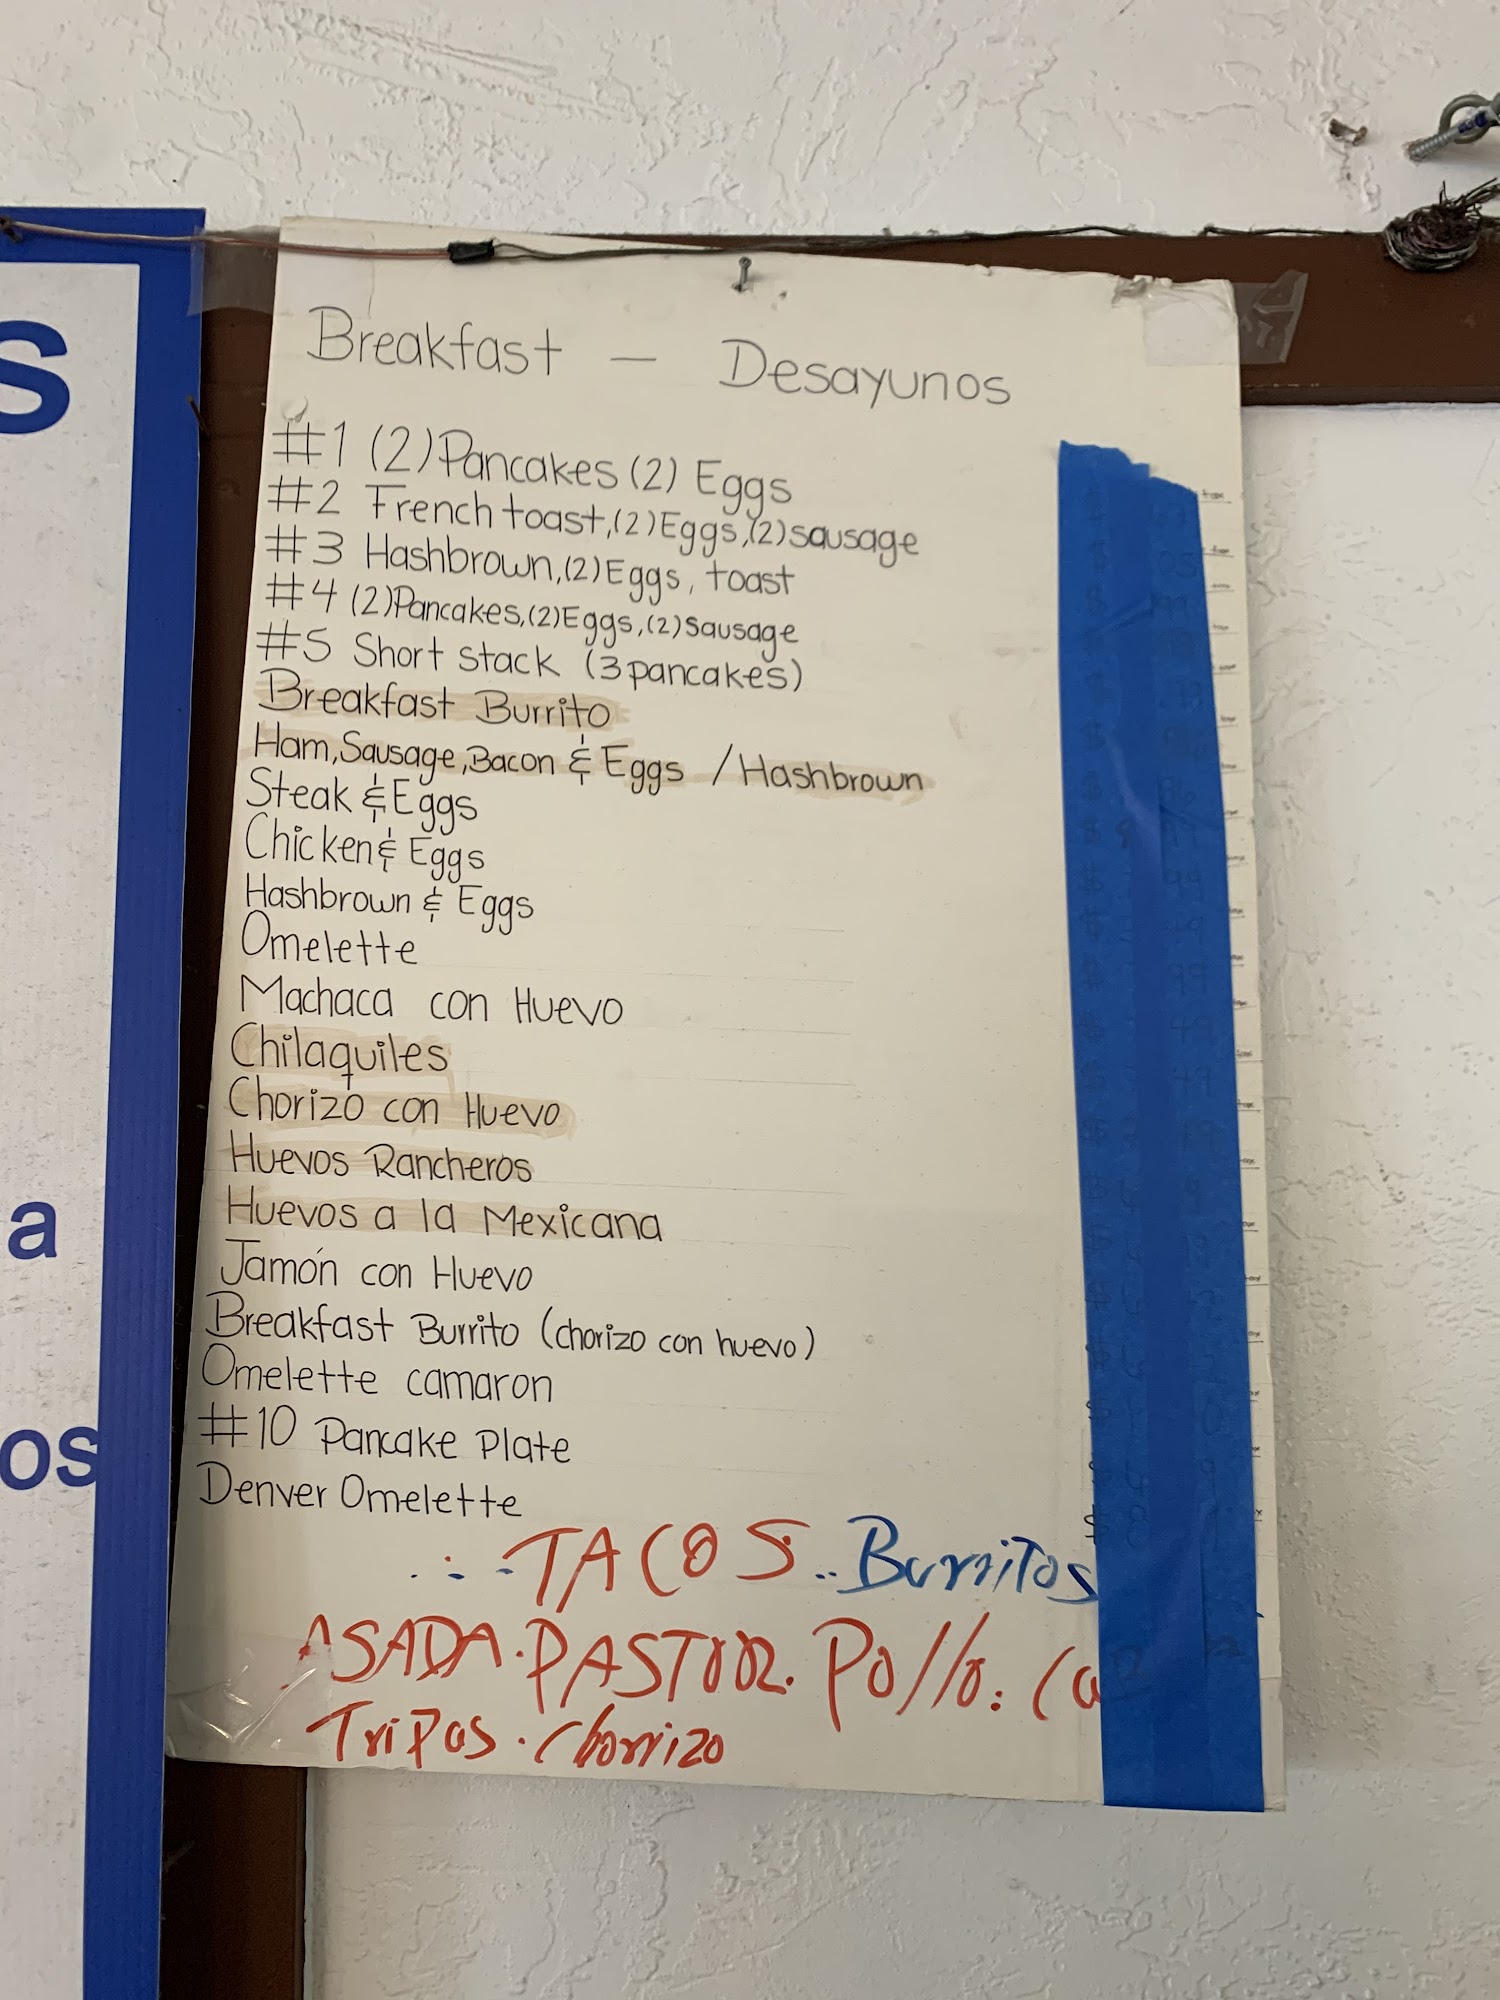 Breakfast — Desayunos
#1 (2) Pancakes (2) Eggs
#2 French toast, (2) Eggs, (2) sausage
#3 Hashbrown, (2) Eggs, toast
#4 (2) Pancakes, (2) Eggs, (2) Sausage
#5 Short stack (3 pancakes)
Breakfast Burrito
Ham, Sausage, Bacon & Eggs / Hashbrown
Steak & Eggs
Chicken & Eggs
Hashbrown & Eggs
Omelette
Machaca con Huevo
Chilaquiles
Chorizo con Huevo
Huevos Rancheros
Huevos a la Mexicana
Jamón con Huevo
Breakfast Burrito (chorizo con huevo)
Omelette camaron
#10 Pancake Plate
Denver Omelette
TACOS.. Burritos
ASADA. PASTOR. Pollo.
Tripas. Chorrizo
s
a
os